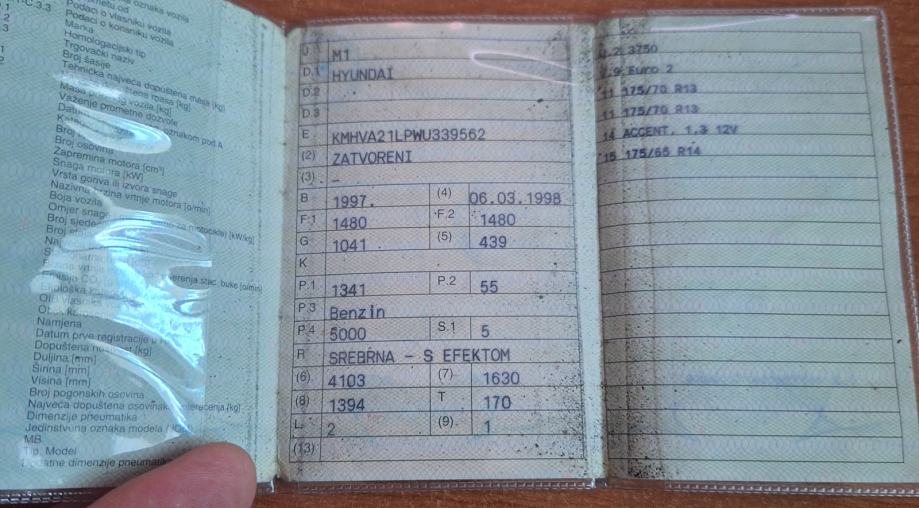 C.3.3
oznaka vozila
Podaci o vlasniku vozila
Podaci o korisniku vozila
Marka
Homologacijski tip
Trgovački naziv
Broj šasije
Tehnička najveća dopuštena masa [kg]
masa [kg]
Masa vozila [kg]
Važenje prometne dozvole
oznakom pod A
Broj
Broj osovina
Zapremina motora [cm³]
Snaga motora [kW]
Vrsta goriva ili izvora snage
Nazivna brzina vrtnje motora [o/min]
Boja vozila
Omjer snage za motocikle) [kW/kg]
Broj sjedećih
Broj
mjerenja stac. buke [o/min]
CO₂
Ekološka
OIB vlasnika
Namjena
Datum prve registracije u
Dopuštena [kg]
Duljina [mm]
Širina [mm]
Visina [mm]
Broj pogonskih osovina
Najveća dopuštena osovinsko opterećenja [kg]
Dimenzije pneumatika
Jedinstvena oznaka modela /
MB
Tip, Model
Dodatne dimenzije pneumatika
J M1
D.1 HYUNDAI
D.2
D.3
E KMHVA21LPWU339562
(2) ZATVORENI
(3) –
B 1997. (4) 06.03.1998
F.1 1480 F.2 1480
G 1041 (5) 439
K
P.1 1341 P.2 55
P.3 Benzin
P.4 5000 S.1 5
R SREBRNA - S EFEKTOM
(6) 4103 (7) 1630
(8) 1394 T 170
L 2 (9) 1
(13)
U.2 3750
V.9 Euro 2
11 175/70 R13
11 175/70 R13
14 ACCENT, 1.3 12V
15 175/65 R14